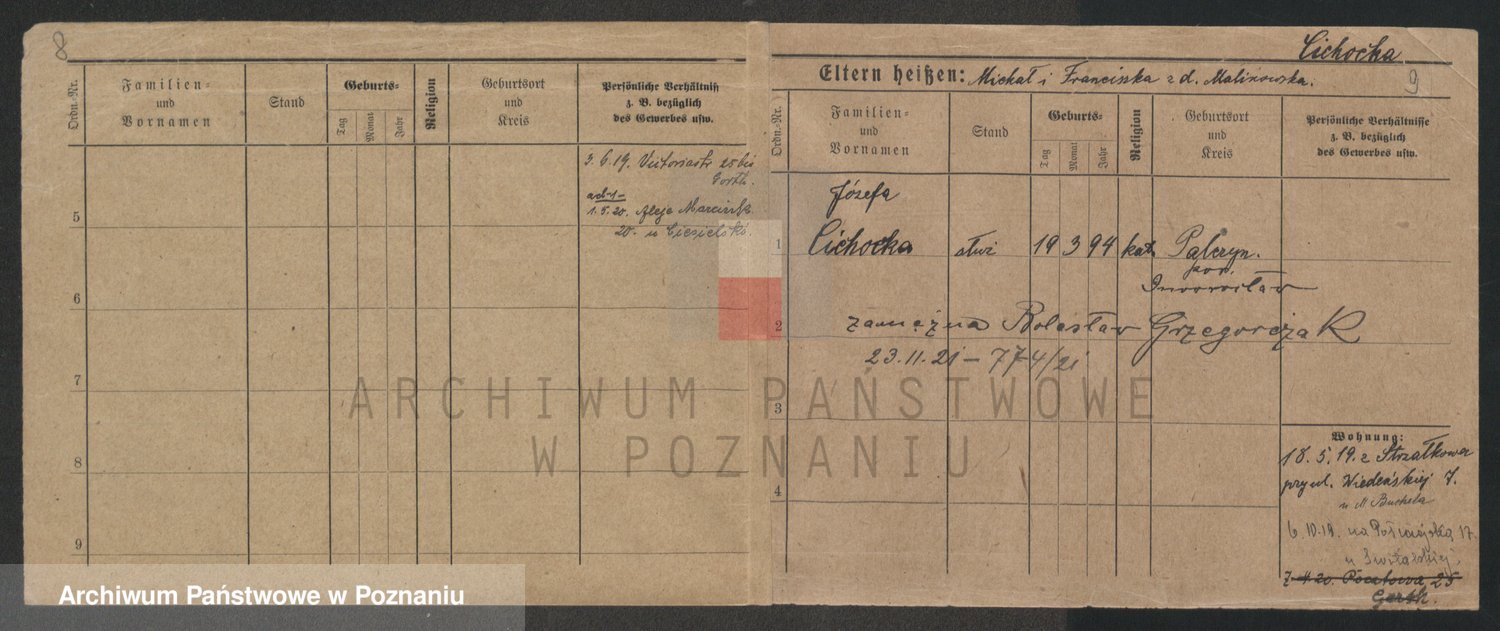 8
Ordn.-Nr.
Familien-
und
Vornamen
Stand
Geburts-
Tag
Monat
Jahr
Religion
Geburtsort
und
Kreis
Persönliche Verhältnisse
z. B. bezüglich
des Gewerbes usw.
3.6.19. Victoriastr 25 bei
ad-1-
5
1.5.20. Aleje Marcink.
20. u
6
7
8
9
Cichocka
9
Eltern heißen: Michał i Franciszka z d. Malinowska.
Ordn.-Nr.
Familien-
und
Vornamen
Stand
Geburts-
Tag
Monat
Jahr
Religion
Geburtsort
und
Kreis
Persönliche Verhältnisse
z. B. bezüglich
des Gewerbes usw.
Józefa
1 Cichocka służ 19 3 94 kat. Palczyn.
pow.
Inowrocław
2 zamężna Bolesław Grzegorczak
23.11.21 - 774/21
3
4
Wohnung:
18.5.19. z Strzałkowa
przy ul. Wiedeńskiej 7.
u M Buchela
6.10.19. na 17.
u
Pocztowa 25
ARCHIWUM PAŃSTWOWE
W POZNANIU
Archiwum Państwowe w Poznaniu